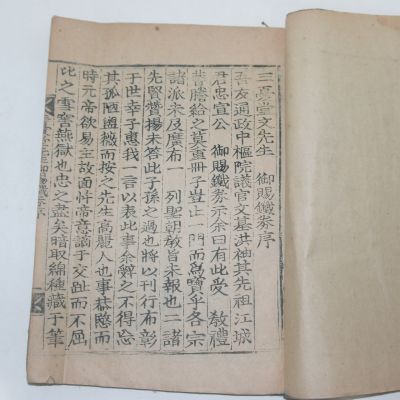 三憂堂文先生 御賜鐵券序
吾友通政中樞院議官文基洪袖其先祖江城
君忠宣公 御賜鐵券示余曰有此受 教禮
曹謄給之莫重冊子豈止一門而爲寶乎各宗
諸派未及廣布 列聖朝敎旨未報也二諸
先賢贊揚未答此子孫之過也將以刊行布彰
于世幸子惠我一言以表此事余辭之不得忘
其孤陋盥薇而按之先生高麗人也事恭愍而
時元帝欲易主故面忤帝意謫于交趾而不屈
比之雪窖燕獄也忠之盡矣暗取綿種藏于筆